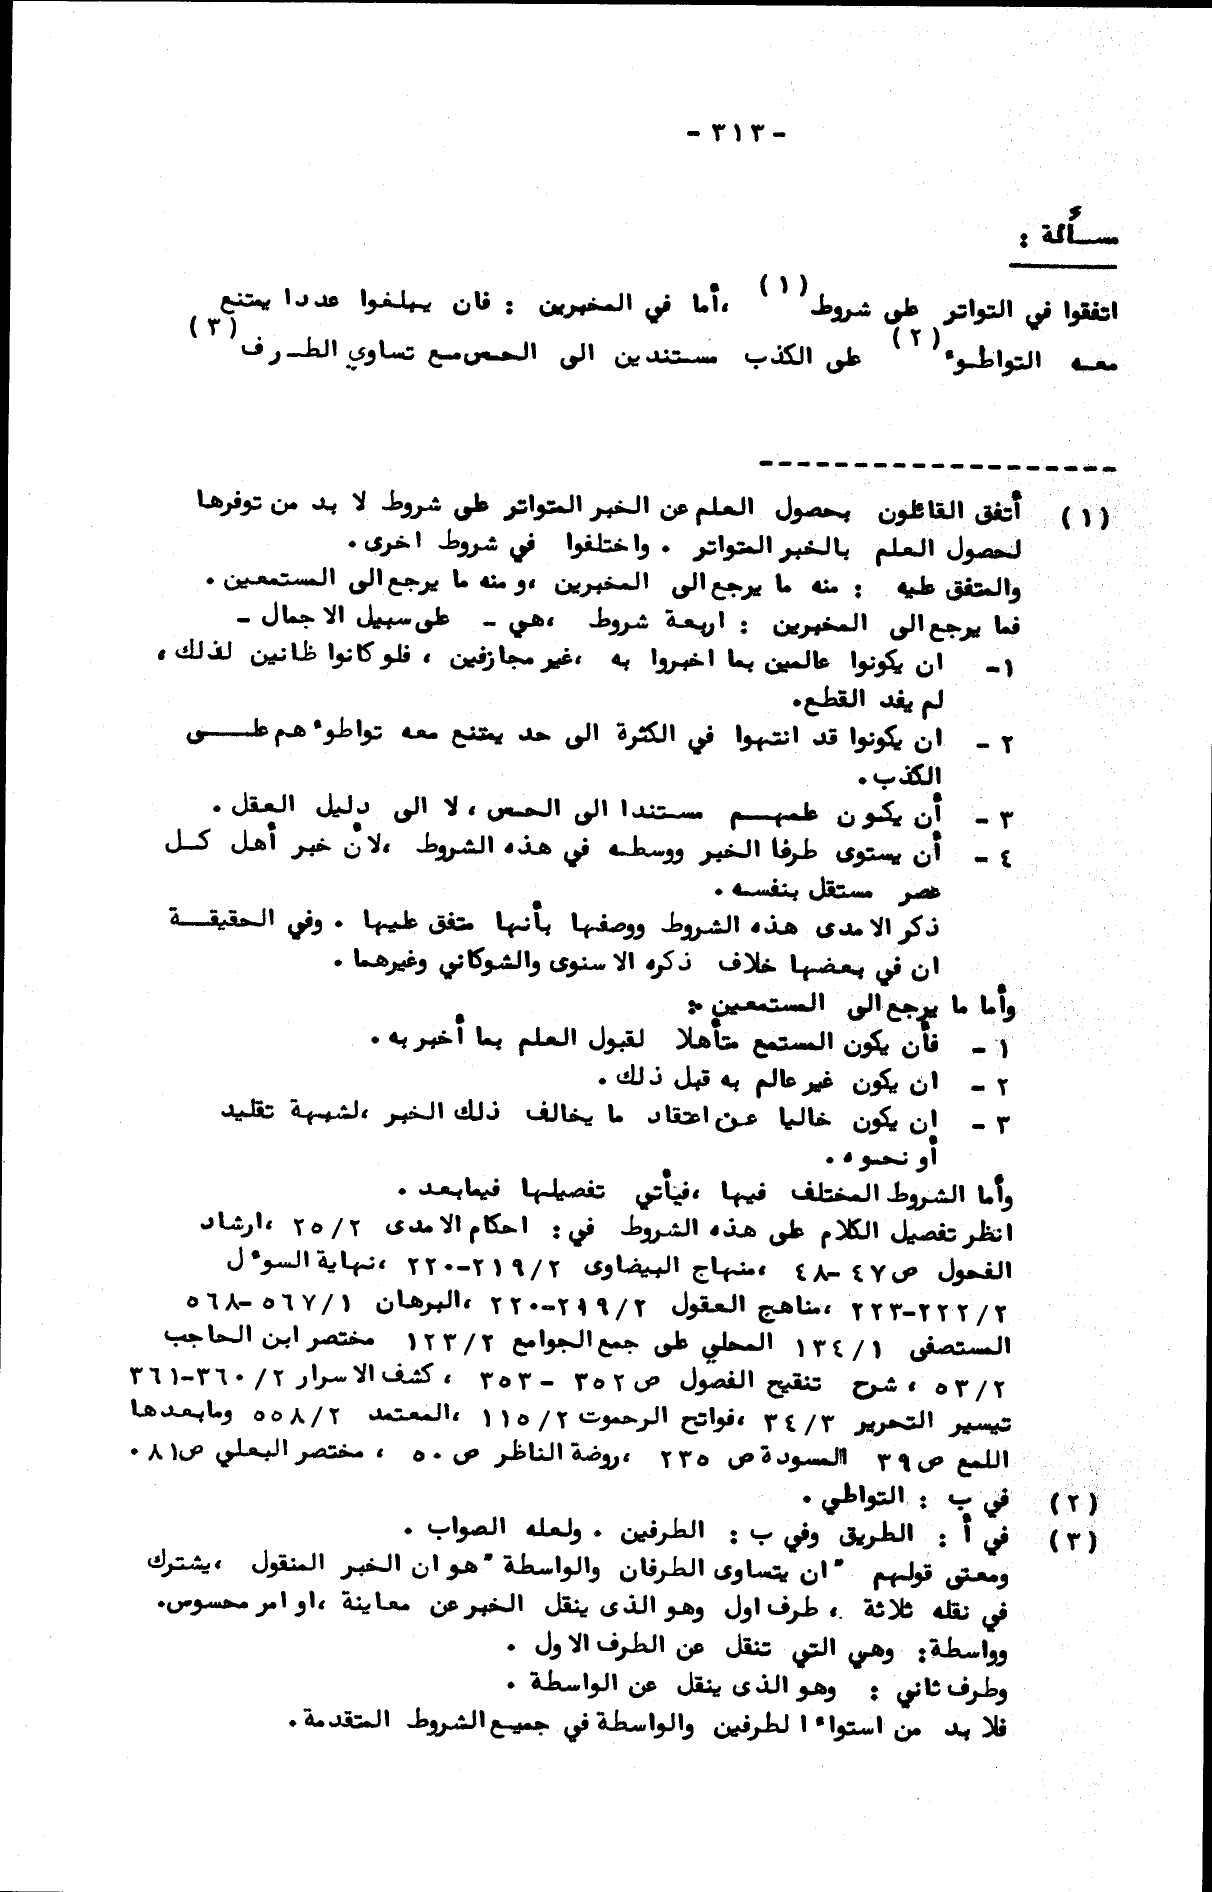 - ٣١٣ -
مسألة :
اتفقوا في التواتر على شروط (١) ،أما في المخبرين : فان يبلغوا عددا يمتنع
معه التواطوء (٢) على الكذب مستندين الى الحس مع تساوي الطرف (٣)
(١) أتفق القائلون بحصول العلم عن الخبر المتواتر على شروط لا بد من توفرها
لحصول العلم بالخبر المتواتر . واختلفوا في شروط اخرى .
والمتفق عليه : منه ما يرجع الى المخبرين ،و منه ما يرجع الى المستمعين .
فما يرجع الى المخبرين : اربعة شروط ،هي - على سبيل الاجمال -
١- ان يكونوا عالمين بما اخبروا به ،غير مجازفين ، فلو كانوا ظانين لذلك ،
لم يفد القطع.
٢ - ان يكونوا قد انتهوا في الكثرة الى حد يمتنع معه تواطوءهم علـى
الكذب .
٣ - أن يكون علمهم مستندا الى الحس ، لا الى دليل العقل .
٤ - أن يستوى طرفا الخبر ووسطه في هذه الشروط ،لأن خبر أهل كل
عصر مستقل بنفسه .
ذكر الامدى هذه الشروط ووصفها بأنها متفق عليها . وفي الحقيقة
ان في بعضها خلاف ذكره الاسنوى والشوكاني وغيرهما .
وأما ما يرجع الى المستمعين :
١ - فأن يكون المستمع متأهلا لقبول العلم بما أخبر به .
٢ - ان يكون غير عالم به قبل ذلك .
٣ - ان يكون خاليا عن اعتقاد ما يخالف ذلك الخبر ،لشبهة تقليد
أو نحوه .
وأما الشروط المختلف فيها ،فيأتي تفصيلها فيمابعد .
انظر تفصيل الكلام على هذه الشروط في : احكام الامدى ٢٥/٢ ،ارشاد
الفحول ص ٤٧-٤٨ ،منهاج البيضاوى ٢١٩/٢-٢٢٠ ،نهاية السوءل
٢٢٢/٢-٢٢٣ ،مناهج العقول ٢١٩/٢-٢٢٠ ،البرهان ٥٦٧/١-٥٦٨
المستصفى ١٣٤/١ المحلي على جمع الجوامع ١٢٣/٢ مختصر ابن الحاجب
٥٣/٢ ، شرح تنقيح الفصول ص ٣٥٢ - ٣٥٣ ، كشف الاسرار ٣٦٠/٢-٣٦١
تيسير التحرير ٣٤/٣ ،فواتح الرحموت ١١٥/٢ ،المعتمد ٥٥٨/٢ ومابعدها
اللمع ص ٣٩ المسودة ص ٢٣٥ ،روضة الناظر ص ٥٠ ، مختصر البعلي ص ٨١ .
(٢) في ب : التواطي .
(٣) في أ : الطريق وفي ب : الطرفين . ولعله الصواب .
ومعنى قولهم " ان يتساوى الطرفان والواسطة " هو ان الخبر المنقول ،يشترك
في نقله ثلاثة ، طرف اول وهو الذى ينقل الخبر عن معاينة ،او امر محسوس.
وواسطة: وهي التي تنقل عن الطرف الاول .
وطرف ثاني : وهو الذى ينقل عن الواسطة .
فلا بد من استواء الطرفين والواسطة في جميع الشروط المتقدمة .